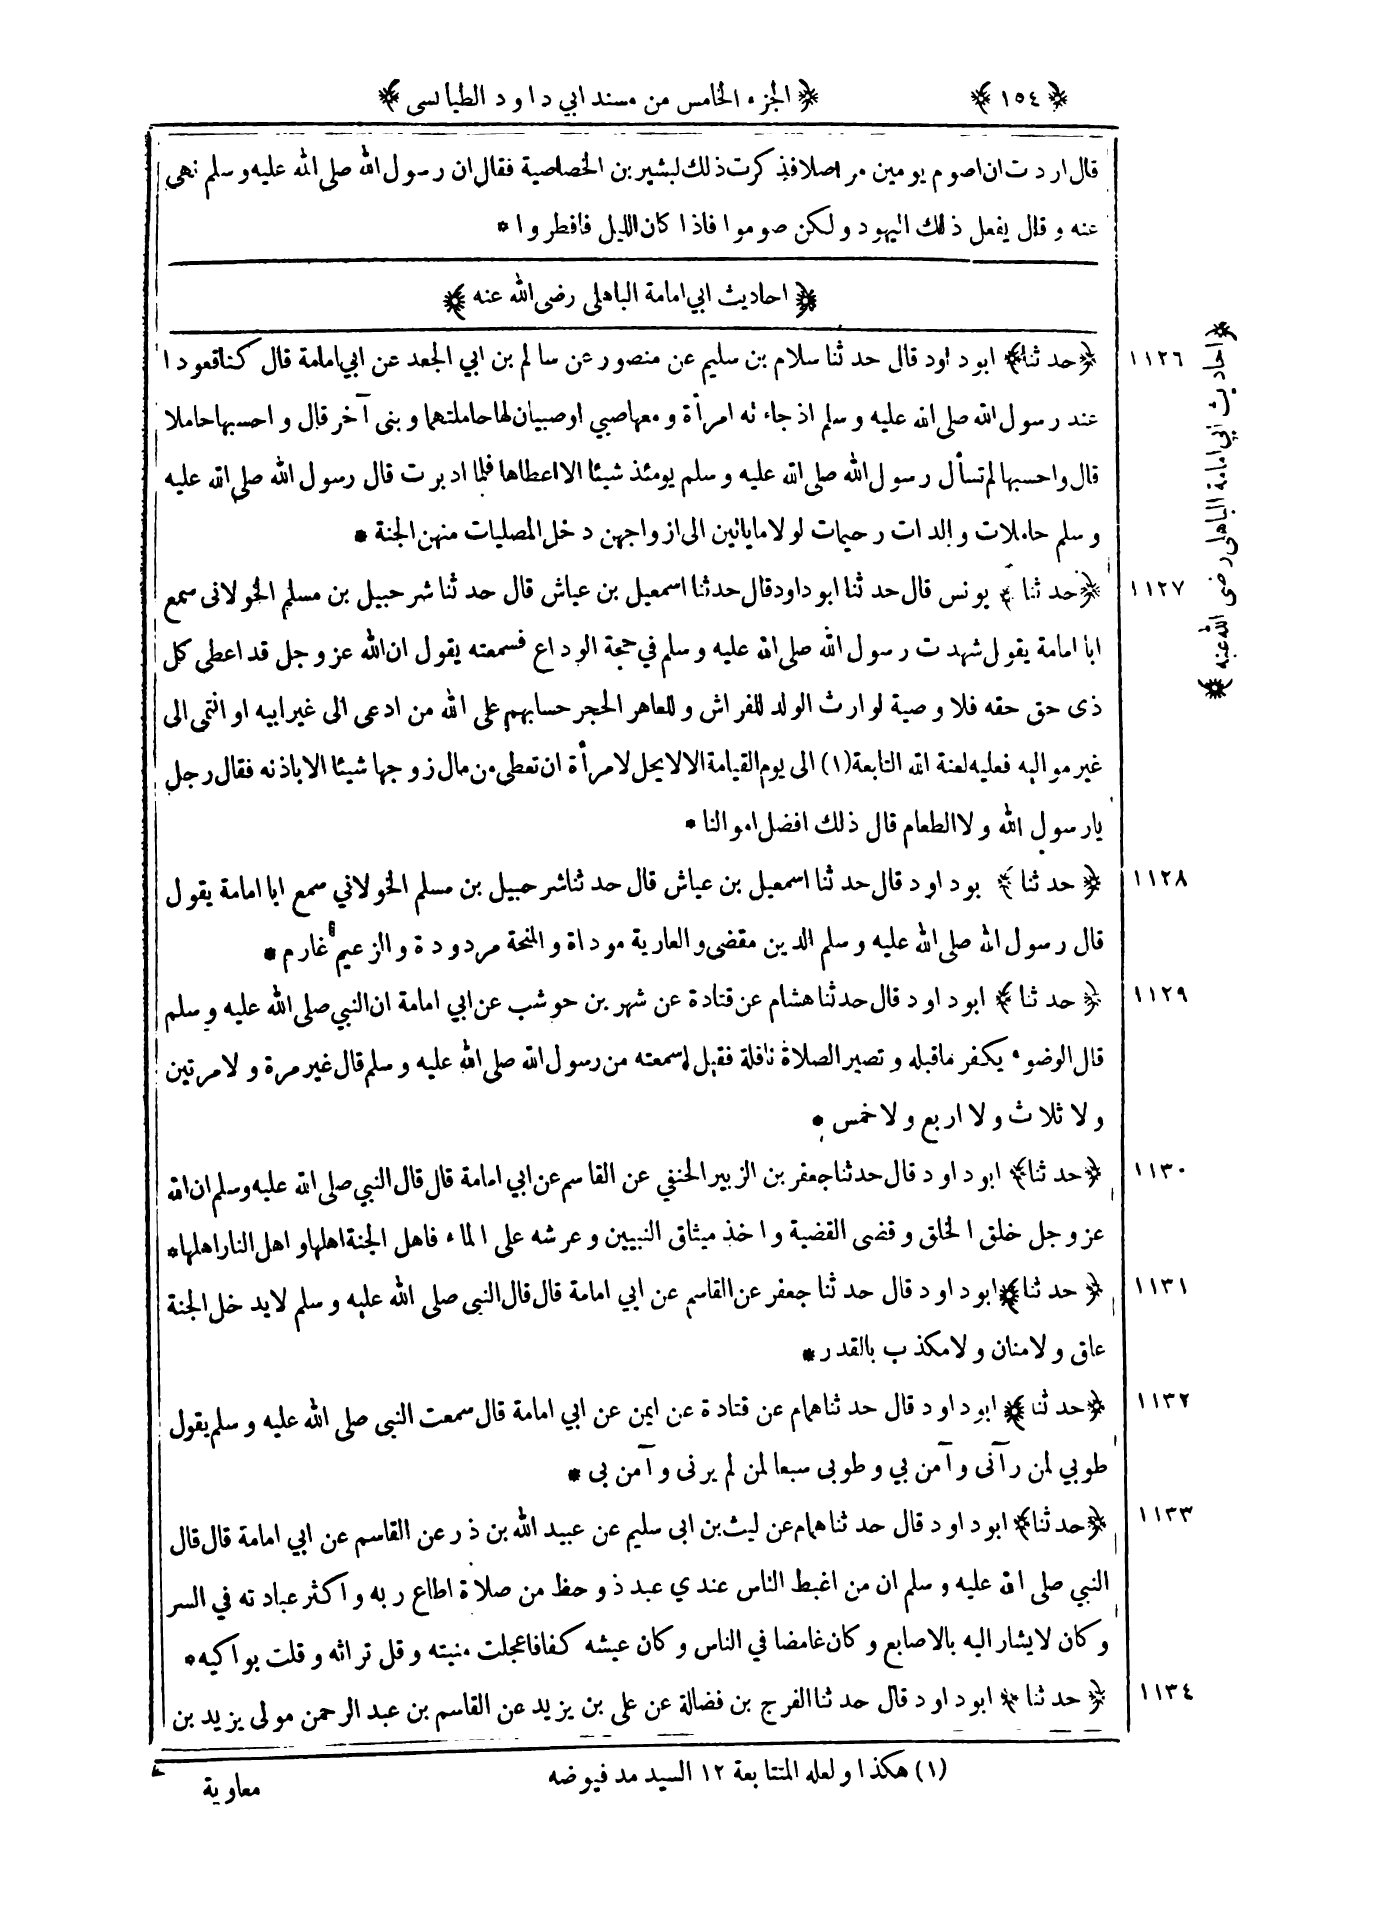 ﴿ ١٥٤ ﴾ ﴿ الجزء الخامس من مسند ابي داود الطيالسى ﴾
قال اردت ان اصوم يومين مواصلا فذكرت ذلك لبشير بن الخصاصية فقال ان رسول الله صلى الله عليه وسلم نهى
عنه وقال يفعل ذلك اليهود ولكن صوموا فاذا كان الليل فافطروا *
﴿ احاديث ابي امامة الباهلى رضى الله عنه ﴾
١١٢٦ ﴿حدثنا﴾ ابو داود قال حدثنا سلام بن سليم عن منصور عن سالم بن ابي الجعد عن ابي امامة قال كنا قعودا
عند رسول الله صلى الله عليه وسلم اذ جاءته امرأة ومعها صبي او صبيان لها حاملتهما وبنى آخر قال واحسبها حاملا
قال واحسبها لم تسأل رسول الله صلى الله عليه وسلم يومئذ شيئا الا اعطاها فلما ادبرت قال رسول الله صلى الله عليه
وسلم حاملات والدات رحيمات لولا ما ياتين الى ازواجهن دخل المصليات منهن الجنة *
١١٢٧ ﴿حدثنا﴾ يونس قال حدثنا ابو داود قال حدثنا اسمعيل بن عياش قال حدثنا شرحبيل بن مسلم الخولانى سمع
ابا امامة يقول شهدت رسول الله صلى الله عليه وسلم في حجة الوداع فسمعته يقول ان الله عز وجل قد اعطى كل
ذى حق حقه فلا وصية لوارث الولد للفراش وللعاهر الحجر حسابهم على الله من ادعى الى غير ابيه او انتمى الى
غير مواليه فعليه لعنة الله التابعة (١) الى يوم القيامة الا لا يحل لامرأة ان تعطى من مال زوجها شيئا الا باذنه فقال رجل
يارسول الله ولا الطعام قال ذلك افضل اموالنا *
١١٢٨ ﴿حدثنا﴾ بو داود قال حدثنا اسمعيل بن عياش قال حدثنا شرحبيل بن مسلم الخولاني سمع ابا امامة يقول
قال رسول الله صلى الله عليه وسلم الدين مقضى والعارية موداة والمنحة مردودة والزعيم غارم *
١١٢٩ ﴿حدثنا﴾ ابو داود قال حدثنا هشام عن قتادة عن شهر بن حوشب عن ابي امامة ان النبي صلى الله عليه وسلم
قال الوضوء يكفر ما قبله وتصير الصلاة نافلة فقيل اسمعته من رسول الله صلى الله عليه وسلم قال غير مرة ولا مرتين
ولا ثلاث ولا اربع ولا خمس *
١١٣٠ ﴿حدثنا﴾ ابو داود قال حدثنا جعفر بن الزبير الحنفي عن القاسم عن ابي امامة قال قال النبي صلى الله عليه وسلم ان الله
عز وجل خلق الخلق وقضى القضية واخذ ميثاق النبيين وعرشه على الماء فاهل الجنة اهلها واهل النار اهلها *
١١٣١ ﴿حدثنا﴾ ابو داود قال حدثنا جعفر عن القاسم عن ابي امامة قال قال النبى صلى الله عليه وسلم لا يدخل الجنة
عاق ولا منان ولا مكذب بالقدر *
١١٣٢ ﴿حدثنا﴾ ابو داود قال حدثنا همام عن قتادة عن ايمن عن ابي امامة قال سمعت النبى صلى الله عليه وسلم يقول
طوبي لمن رآنى وآمن بي وطوبى سبعا لمن لم يرنى وآمن بى *
١١٣٣ ﴿حدثنا﴾ ابو داود قال حدثنا همام عن ليث بن ابى سليم عن عبيد الله بن ذر عن القاسم عن ابي امامة قال قال
النبي صلى الله عليه وسلم ان من اغبط الناس عندي عبد ذو حظ من صلاة اطاع ربه واكثر عبادته في السر
وكان لا يشار اليه بالاصابع وكان غامضا في الناس وكان عيشه كفافا عجلت منيته وقل تراثه وقلت بواكيه *
١١٣٤ ﴿حدثنا﴾ ابو داود قال حدثنا الفرج بن فضالة عن على بن يزيد عن القاسم بن عبد الرحمن مولى يزيد بن
(١) هكذا ولعله المتتابعة ١٢ السيد مد فيوضه
معاوية
﴿ احاديث ابي امامة الباهلى رضى الله عنه ﴾